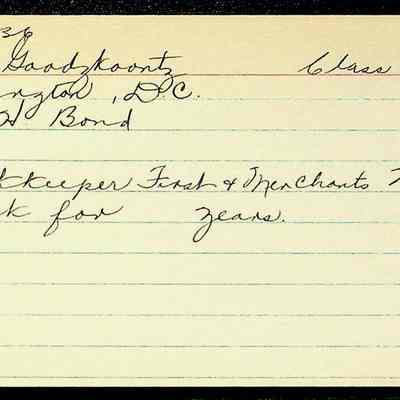 36
Goodykoontz Class
ington, D.C.
W Bond
kkeeper First & Merchants N
k for years.